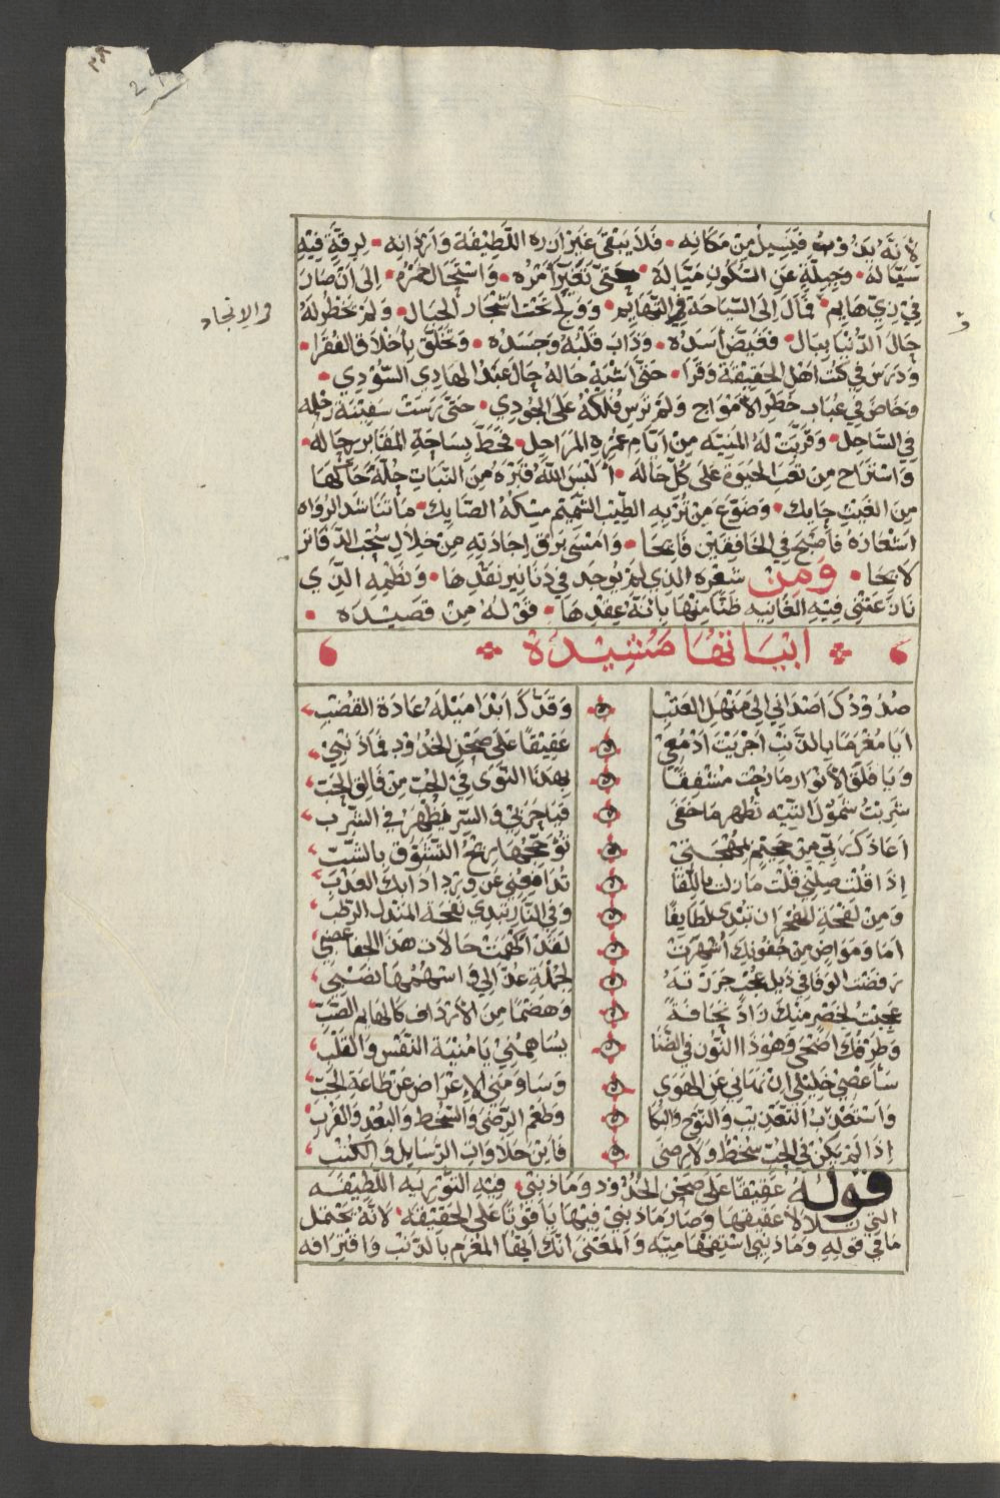 لأنه بذوقه فيسيل من مكانه • فلا يبقى غير ازره اللطيفة واردانه • لرقة فيه
سيالة • وجبلة عن السكون ميالة • حتى تغير أمره • واستحال خمره • إلى ان صار
في زي هايم • فمال إلى السياحة في التهايم • وولج تحت اشجار الجبال • ولم يخطر له
والانجاد
حال الدنيا ببال • فقيض أسده • وذاب قلبه وجسده • وتخلق بأخلاق الفقرا •
ودرس في كتب اهل الحقيقة وقرا • حتى اشبه حاله حال عبد الهادي السؤدي •
وخاض في عباب خطر الأمواج ولم ترس فلكه على الجودي • حتى رست سفينة رحله
في الساحل • وقربت له المنيه من أيام عمره المراحل • فحط بساحة المقابر رحاله •
واستراح من تعب الحيوة على كل حاله • ألبس الله قبره من النبات حلة حاكها
من الغيث حايك • وضوع من تربه الطيب الشميم مسكه الصايك • ما تناشد الرواه
اشعاره فأصبح في الخافقين فايحا • وامسى برق إجادته من خلال سحب الدفاتر
لايحا • ومن شعره الذي لم يوجد في دنانير نقدها • ونظمه الذي
نازعتني فيه الغانيه ظنا منها بانه عقدها • قوله من قصيده •
ابياتها مشيدة
صدودك اصداني إلى منهل العتب وقدك ابدا ميله عادة القضب
ايا مغرما بالذنب اجريت ادمعي عقيقا على صحن الخدود فما ذنبي
ويا فلق الأنوار ما رحت مشفقا بهذا النوى في الحب من فالق الحب
شربت شمول التيه تظهر ما خفى فيا حربي والسر يظهر في الشرب
اعاذك ربي من جحيم بمهجتي تؤججها ريح التشوق بالشب
إذا قلت صلني قلت مازلت باللقا تدافعني عن ورد ادابك العذب
ومن لفحة للهجر ان تبدي لطايفا وفي النار تبدي نفحة المندل الرطب
اما ومواض من جفونك أشهرت لقد اكهمت حالات هذا الجفا عضبي
رفضت الوفا في ذيل عجب جررته لجملة عذالي واسهمها نصبي
عجبت لخصر منك زاد نحافة وهضما من الأرداف كالهايم الصب
وطرفك اضحى وهو ذا النون في الضنا يساهمني يا منية النفس والقلب
سأعصي خليلي ان نهاني عن الهوى وساومني الإعراض عن طاعة الحب
واستعذب التعذيب والنوح والبكا وطعم الرضى والسخط والبعد والقرب
إذا لم يكن في الحب سخط ولا رضى فأين حلاوات الرسايل والكتب
قوله عقيقا على صحن الخدود وما ذنبي • فيه التوريه اللطيفه
التي تلالأ عقيقها وصار ماذبي فيها ياقوتا على الحقيقة • لأنه يحتمل
ما في قوله وما ذنبي استفهاميه والمعنى انك ايها المغرم بالذنب واقترافه